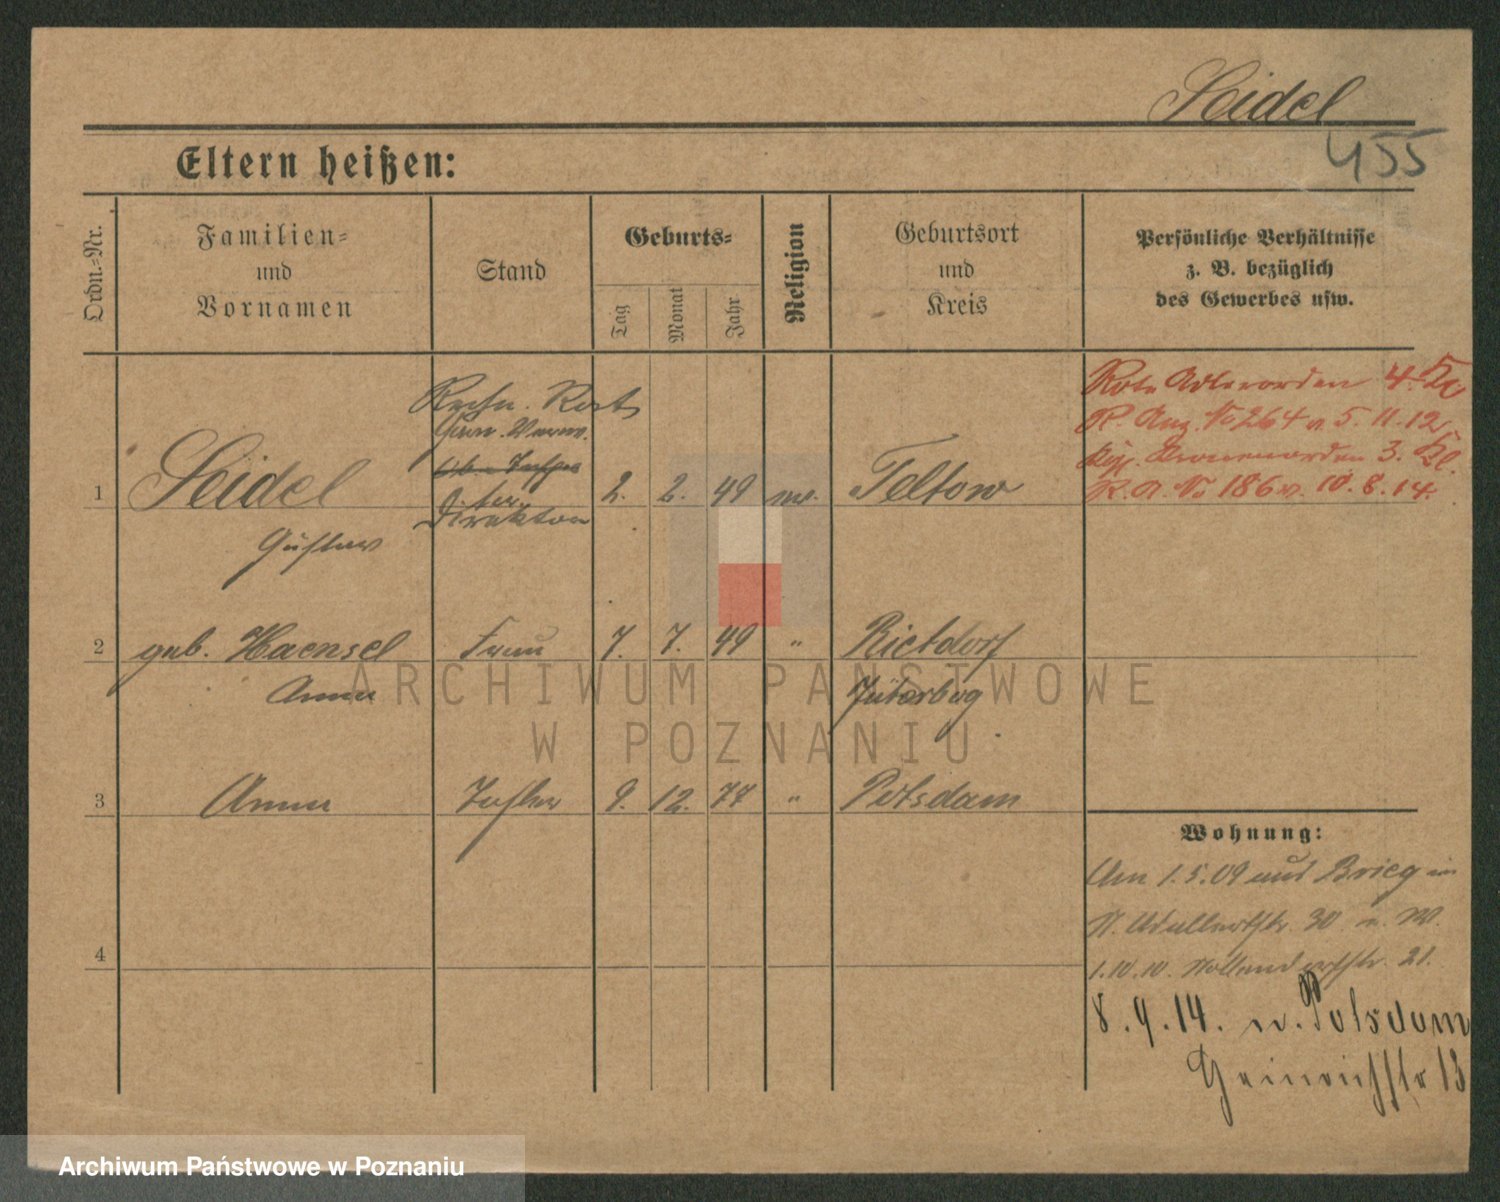 Seidel
455
Eltern heißen:
Ordn.-Nr.
Familien-
und
Vornamen
Stand
Geburts-
Tag
Monat
Jahr
Religion
Geburtsort
und
Kreis
Persönliche Verhältnisse
z. B. bezüglich
des Gewerbes usw.
Rote Adlerorden 4. Kl.
R. Anz. No 264 v. 5. 11. 12,
Kgl. Kronenorden 3. Kl.
R. A. No 186 v. 10. 8. 14.
Rechn. Rat
Garn. Verw.
Direktor
1 Seidel 2. 2. 49 ev. Teltow
Gustav
2 geb. Haensel Frau 7. 7. 49 " Rietdorf
Anna Jüterbog
3 Anna Tochter 9. 12. 77 " Potsdam
4
Wohnung:
Am 1. 5. 09 aus Brieg in
St. Adalbertstr. 30 n. W.
1. 10. 10. Hollendorfstr. 21.
8. 9. 14. n. Potsdam
Heinrichstr 13
ARCHIWUM PAŃSTWOWE
W POZNANIU
Archiwum Państwowe w Poznaniu